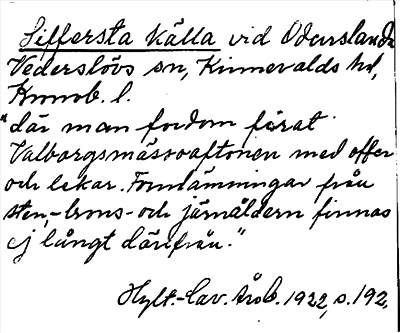 Siffersta källa vid Odenslanda
Vederslövs sn, Kinnevalds hd,
Kronob. l.
"där man fordom firat
Valborgsmässoaftonen med offer
och lekar. Fornlämningar från
sten,- brons- och järnåldern finnas
ej långt därifrån."
Hylt.-Cav. Årsb. 1922, s. 192.